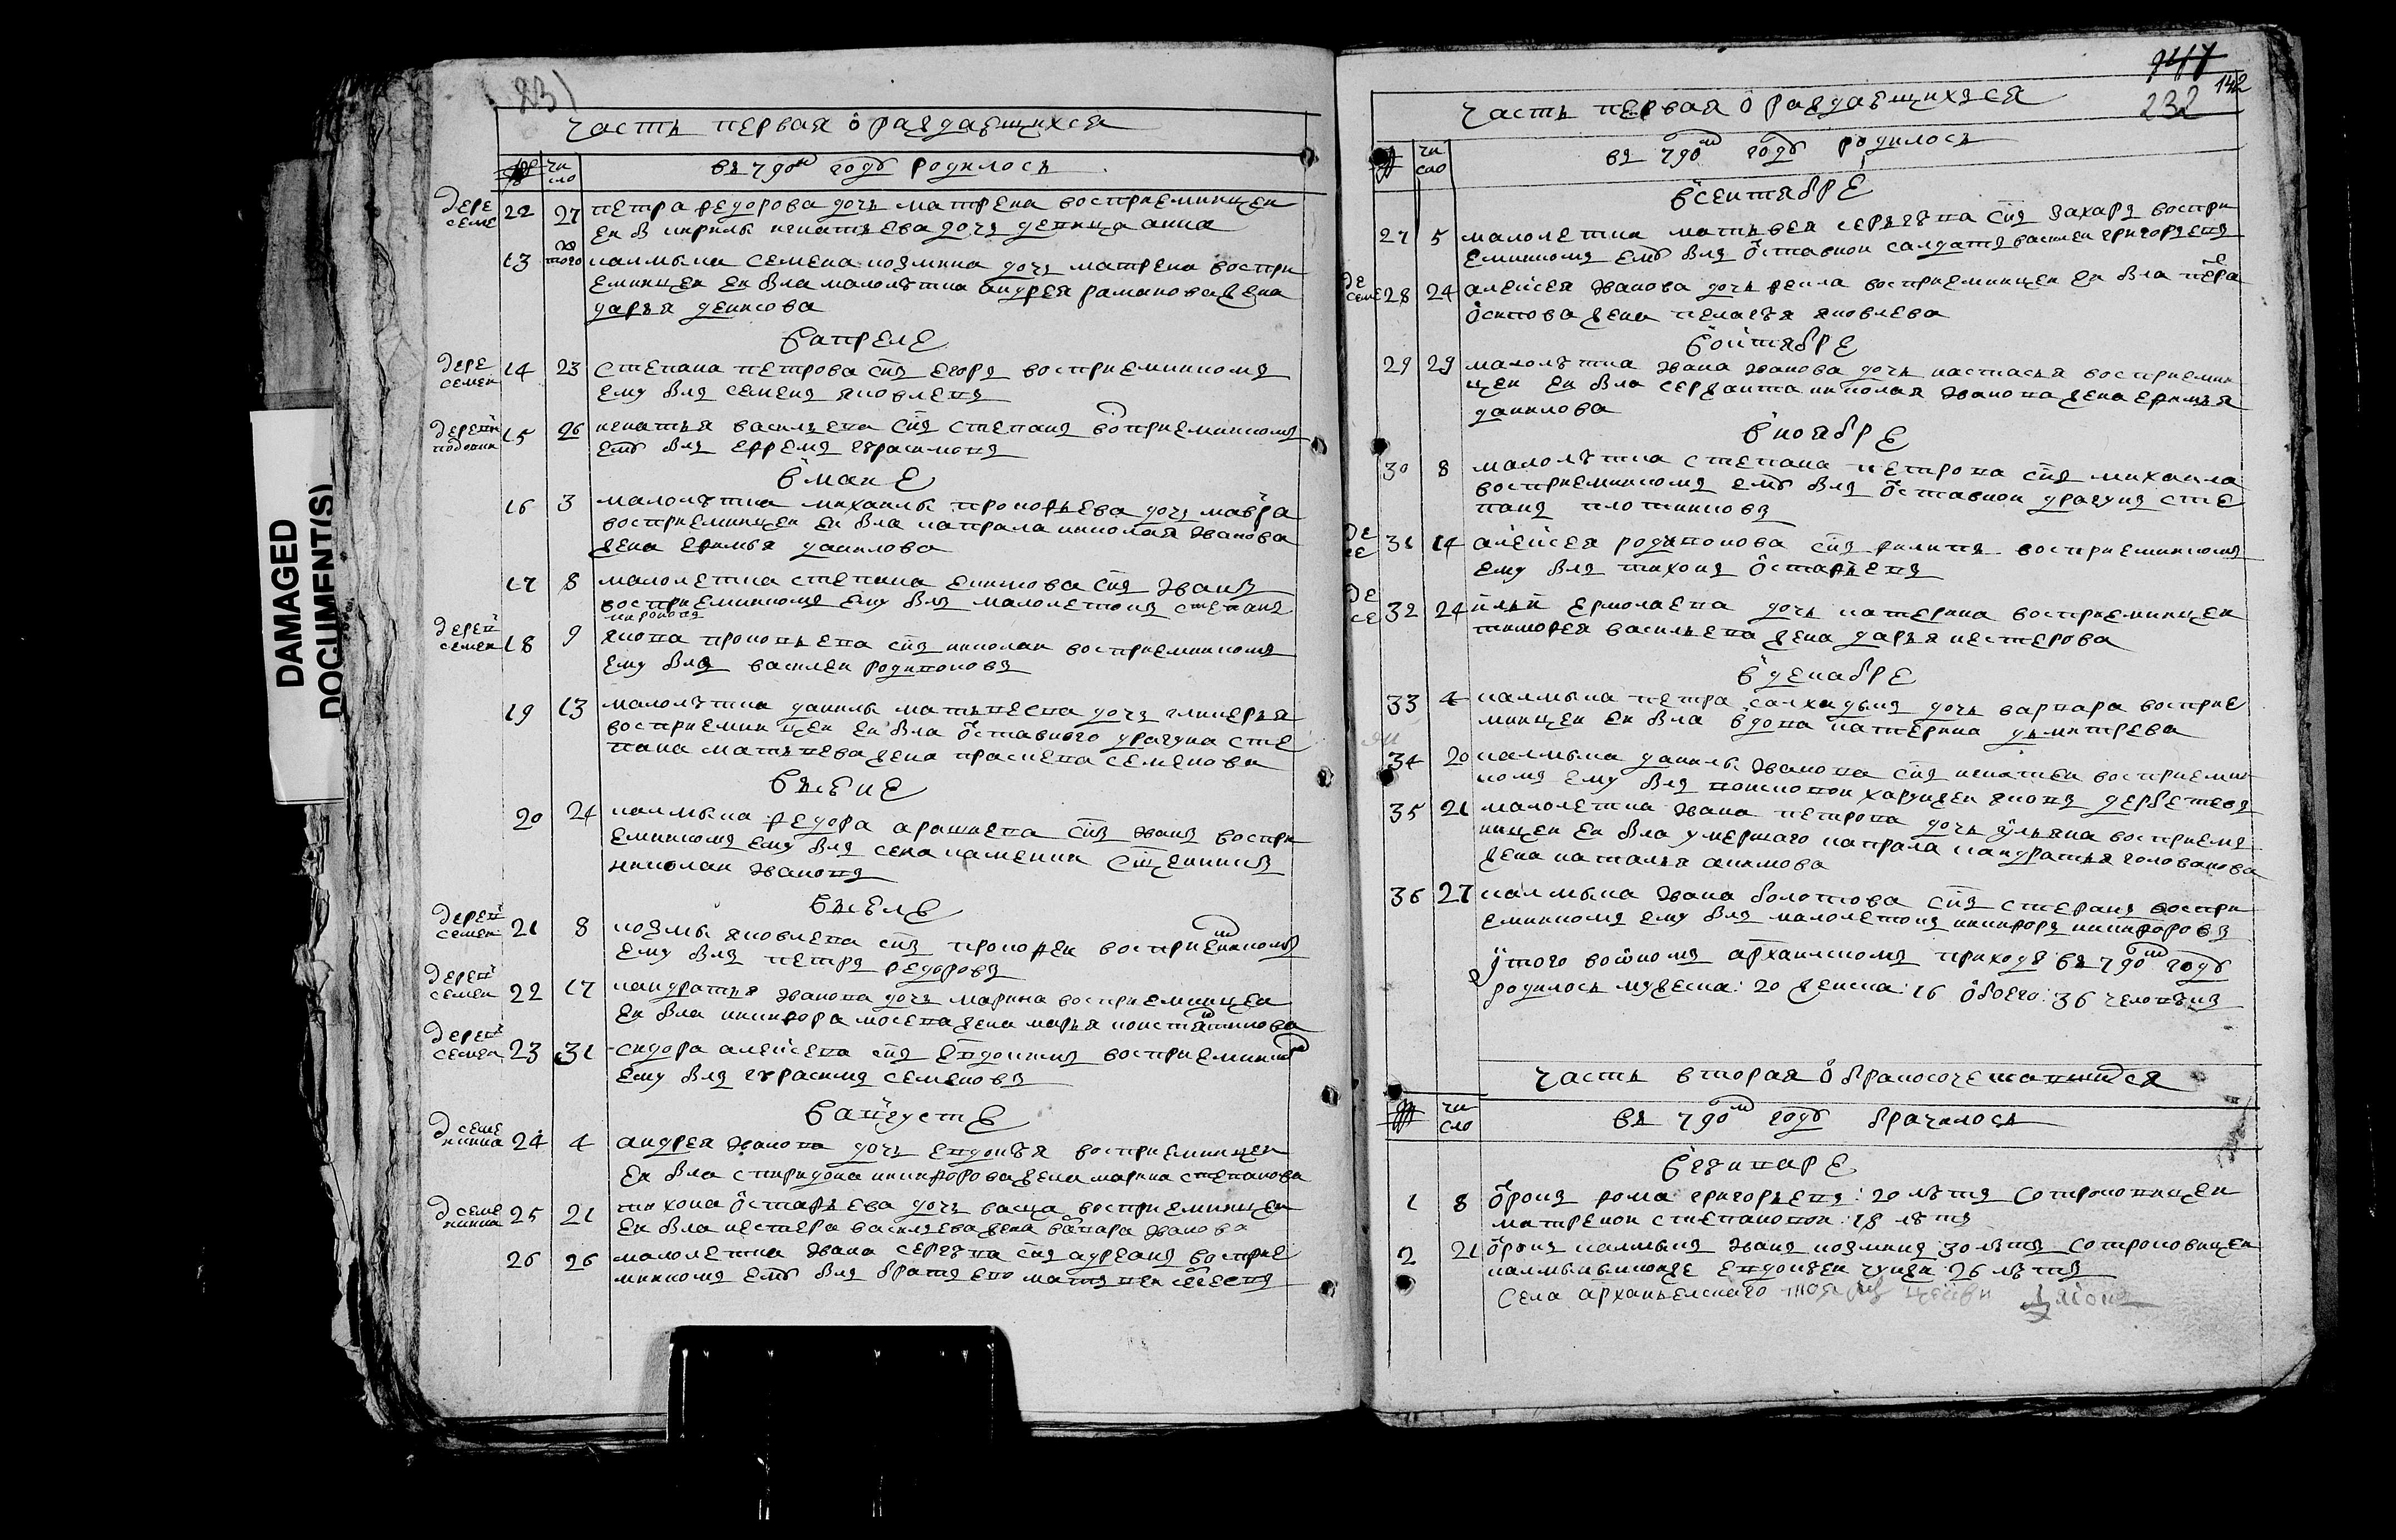 DAMAGED
DOCUMENT(S)
83)
часть первая о раждающихся
число
въ 790м году родилось
дере семе 12 27 петра федорова дочь матрена восприемницеи
еи б кирилы игнатьева дочь девица анна
13 того калмыка семена козмина дочь матрена воспри
емницеи еи была малолѣтка андрея раманова жена
дарья денисова
в апреле
дере семен 14 23 степана петрова снъ егоръ восприемникомъ
ему былъ семенъ яковлевъ
деревн 15 26 игнатья васильева снъ степанъ воприемникомъ
ему былъ ефремъ герасимовъ
в маие
16 3 малолѣтка михаилы прокофьева дочь мавра
восприемницеи еи была капрала николая иванова
жена ефимья данилова
17 8 малолетка степана екимова снъ иванъ
восприемникомъ ему былъ малолетокъ степанъ
мироновъ
дерев семен 18 9 якова прокофьева снъ николаи восприемникомъ
ему былъ василеи родивоновъ
19 13 малолѣтка данилы матвеева дочь гликерья
восприемницеи еи была отставного драгуна сте
пана матвѣева жена прасковa семенова
в июне
20 24 калмыка федора арашиева снъ иванъ воспри
емникомъ ему былъ села каменки сщенникъ
николаи ивановъ
в июле
дерев семен 21 8 козмы яковлева снъ прокофеи восприемникомъ
ему былъ петръ федоровъ
дерев семен 22 17 кандратья иванова дочь марина восприемницеи
еи была никифора мосева жена марья константинова
дерев семен 23 31 сидора алексева снъ евдокимъ восприемникомъ
ему былъ герасимъ семеновъ
в августе
д семе нкина 24 4 андрея иванова дочь евдокѣя восприемницеи
еи была спиридона никифорова жена марина степанова
д семе нкина 25 21 тихона остафьева дочь васса восприемницеи
еи была нестера васильева жена варвара иванова
26 26 малолетка ивана сергѣева снъ адреанъ восприе
мникомъ ему былъ братъ ево матвеи сергеевъ
747
142
232
часть первая о раждающихся
число
въ 790м году родилось
в сентябре
27 5 малолетка матвея сергѣева снъ захаръ воспри
емникомъ ему былъ отставнои салдатъ василеи григорьевъ
де семе 28 24 алексея иванова дочь фекла восприемницеи еи была петра
осипова жена пелагѣя яковлева
в октябре
29 29 малолѣтка ивана иванова дочь настасья восприемни
цеи еи была сержанта николая иванова жена ефимья
данилова
в ноябре
30 8 малолѣтка степана петрова снъ михаила
восприемникомъ ему былъ отставнои драгунъ сте
панъ плотниковъ
де се 31 14 алексея родивонова снъ филипъ восприемникомъ
ему былъ тихонъ остафьевъ
де се 32 24 ильи ермолаева дочь катерина восприемницеи
тимофея васильева жена дарья нестерова
в декабре
33 4 калмыка петра дочь варвара восприе
мницеи еи была вдова катерина дьмитрева
34 20 калмыка данилы иванова снъ игнатеи восприемни
комъ ему былъ яковъ дербетевъ
35 21 малолетка ивана петрова дочь ульяна восприемъ
ницеи еи была умершаго капрала кандратья голованова
жена наталья акимова
36 27 калмыка ивана болотова снъ стефанъ воспри
емникомъ ему былъ малолетокъ никифоръ никифоровъ
итого во ономъ архангскомъ приходѣ въ 790м году
родилось мужеска: 20 женска: 16 обоего: 36 человѣкъ
часть вторая о бракосочетавшихся
число
въ 790м году брачилось
в генваре
1 8 отрокъ фома григорьевъ: 20 лѣтъ со отроковицеи
матренои степановои: 18 лѣтъ
2 21 отрокъ калмыкъ иванъ козминъ 30 лѣтъ со отроковицеи
калмыкскоюже евдокѣеи 26 лѣтъ
села архангелскаго